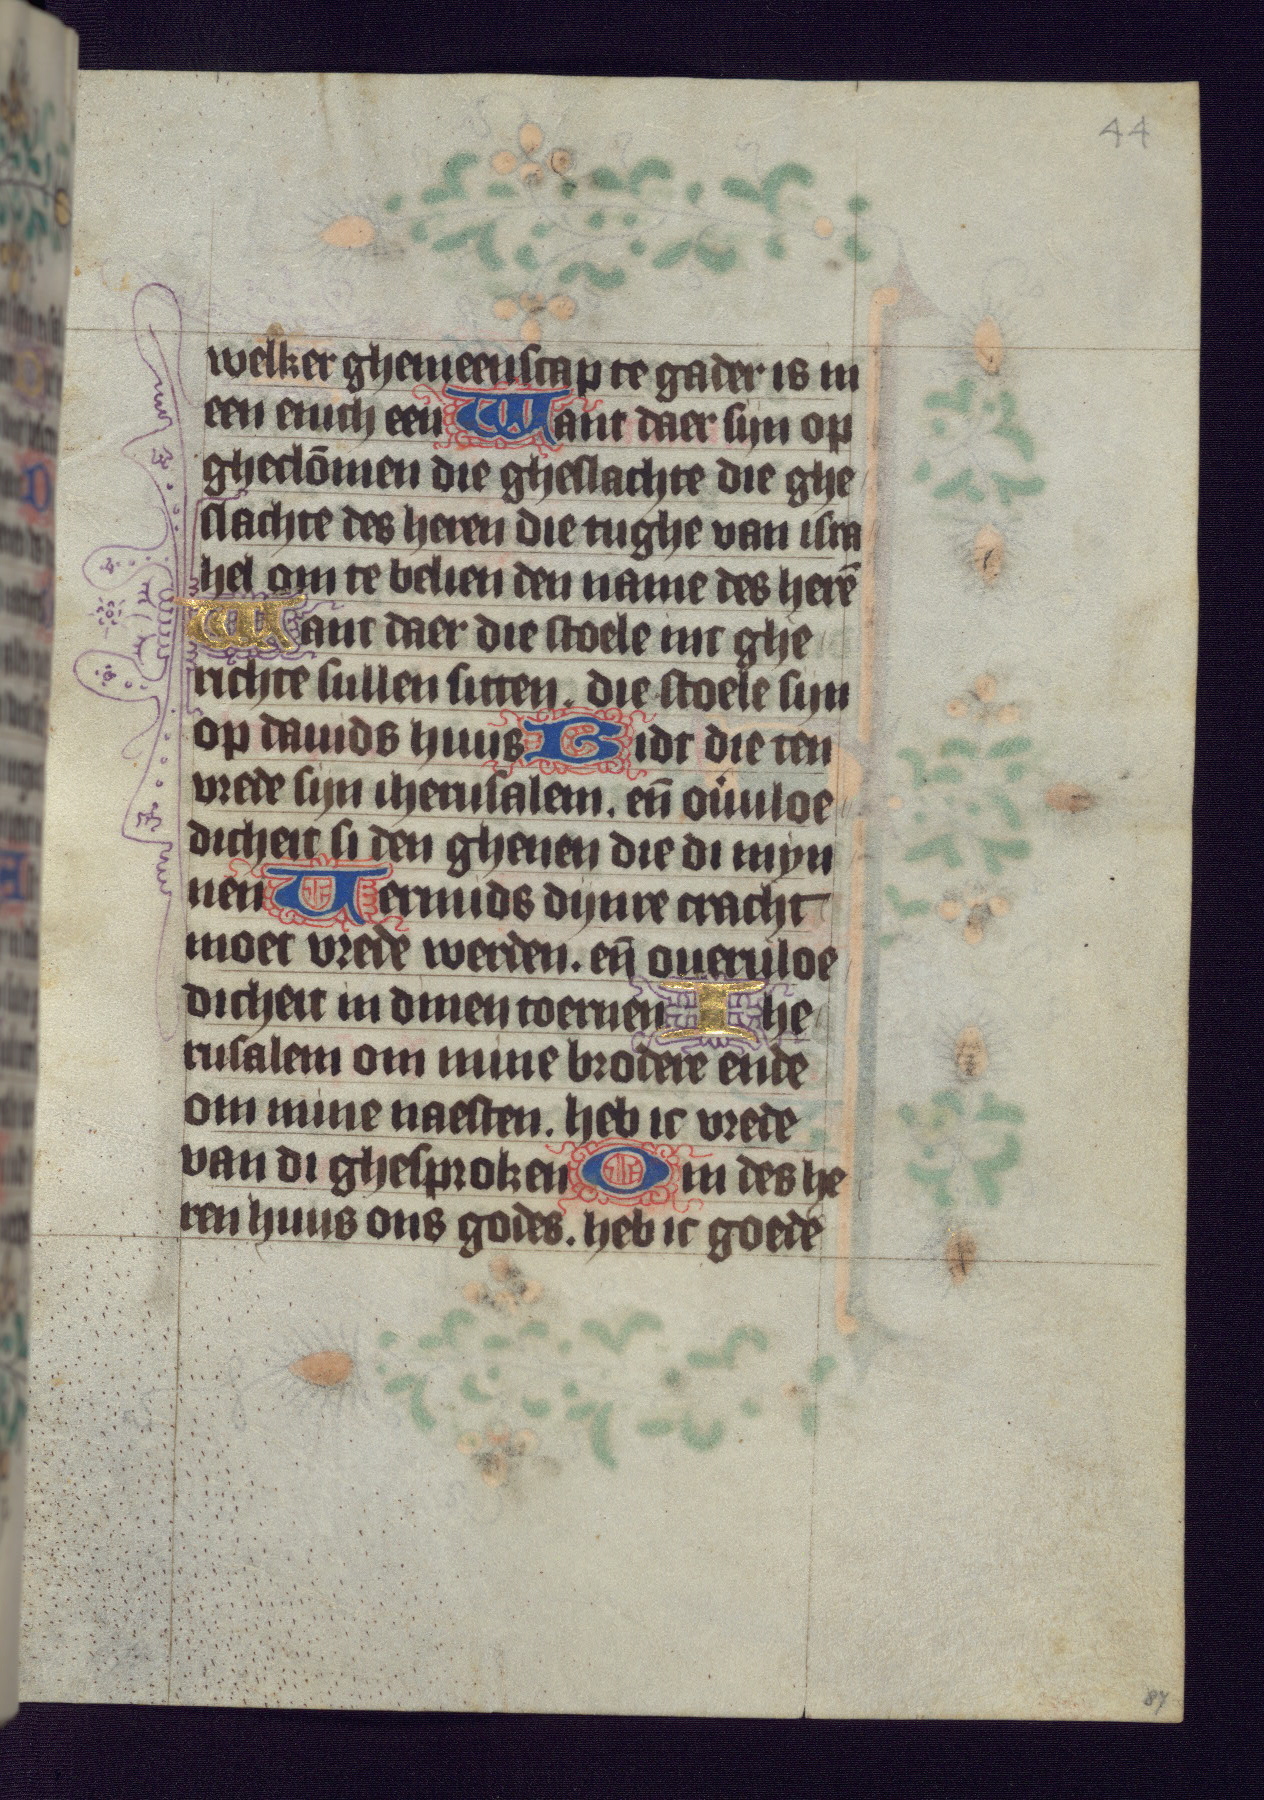 44
welker ghemeenscap te gader is in
een enich een Want daer sijn op
gheclōmen die gheslachte die ghe
slachte des heren die tughe van isra
hel om te belien den name des herē
Want daer die stoele int ghe
richte sullen sitten. die stoele sijn
op dauids huus Bidt die ten
vrede sijn iherusalem. en̄ ou̓uloe
dicheit si den ghenen die di myn
nen Uermids dijnre cracht
moet vrede werden. en̄ oueruloe
dicheit in dinen toernen Ihe
rusalem om mine brodere ende
om mine naesten. heb ic vrede
van di ghesproken Om des he
ren huus ons godes. heb ic goede
87